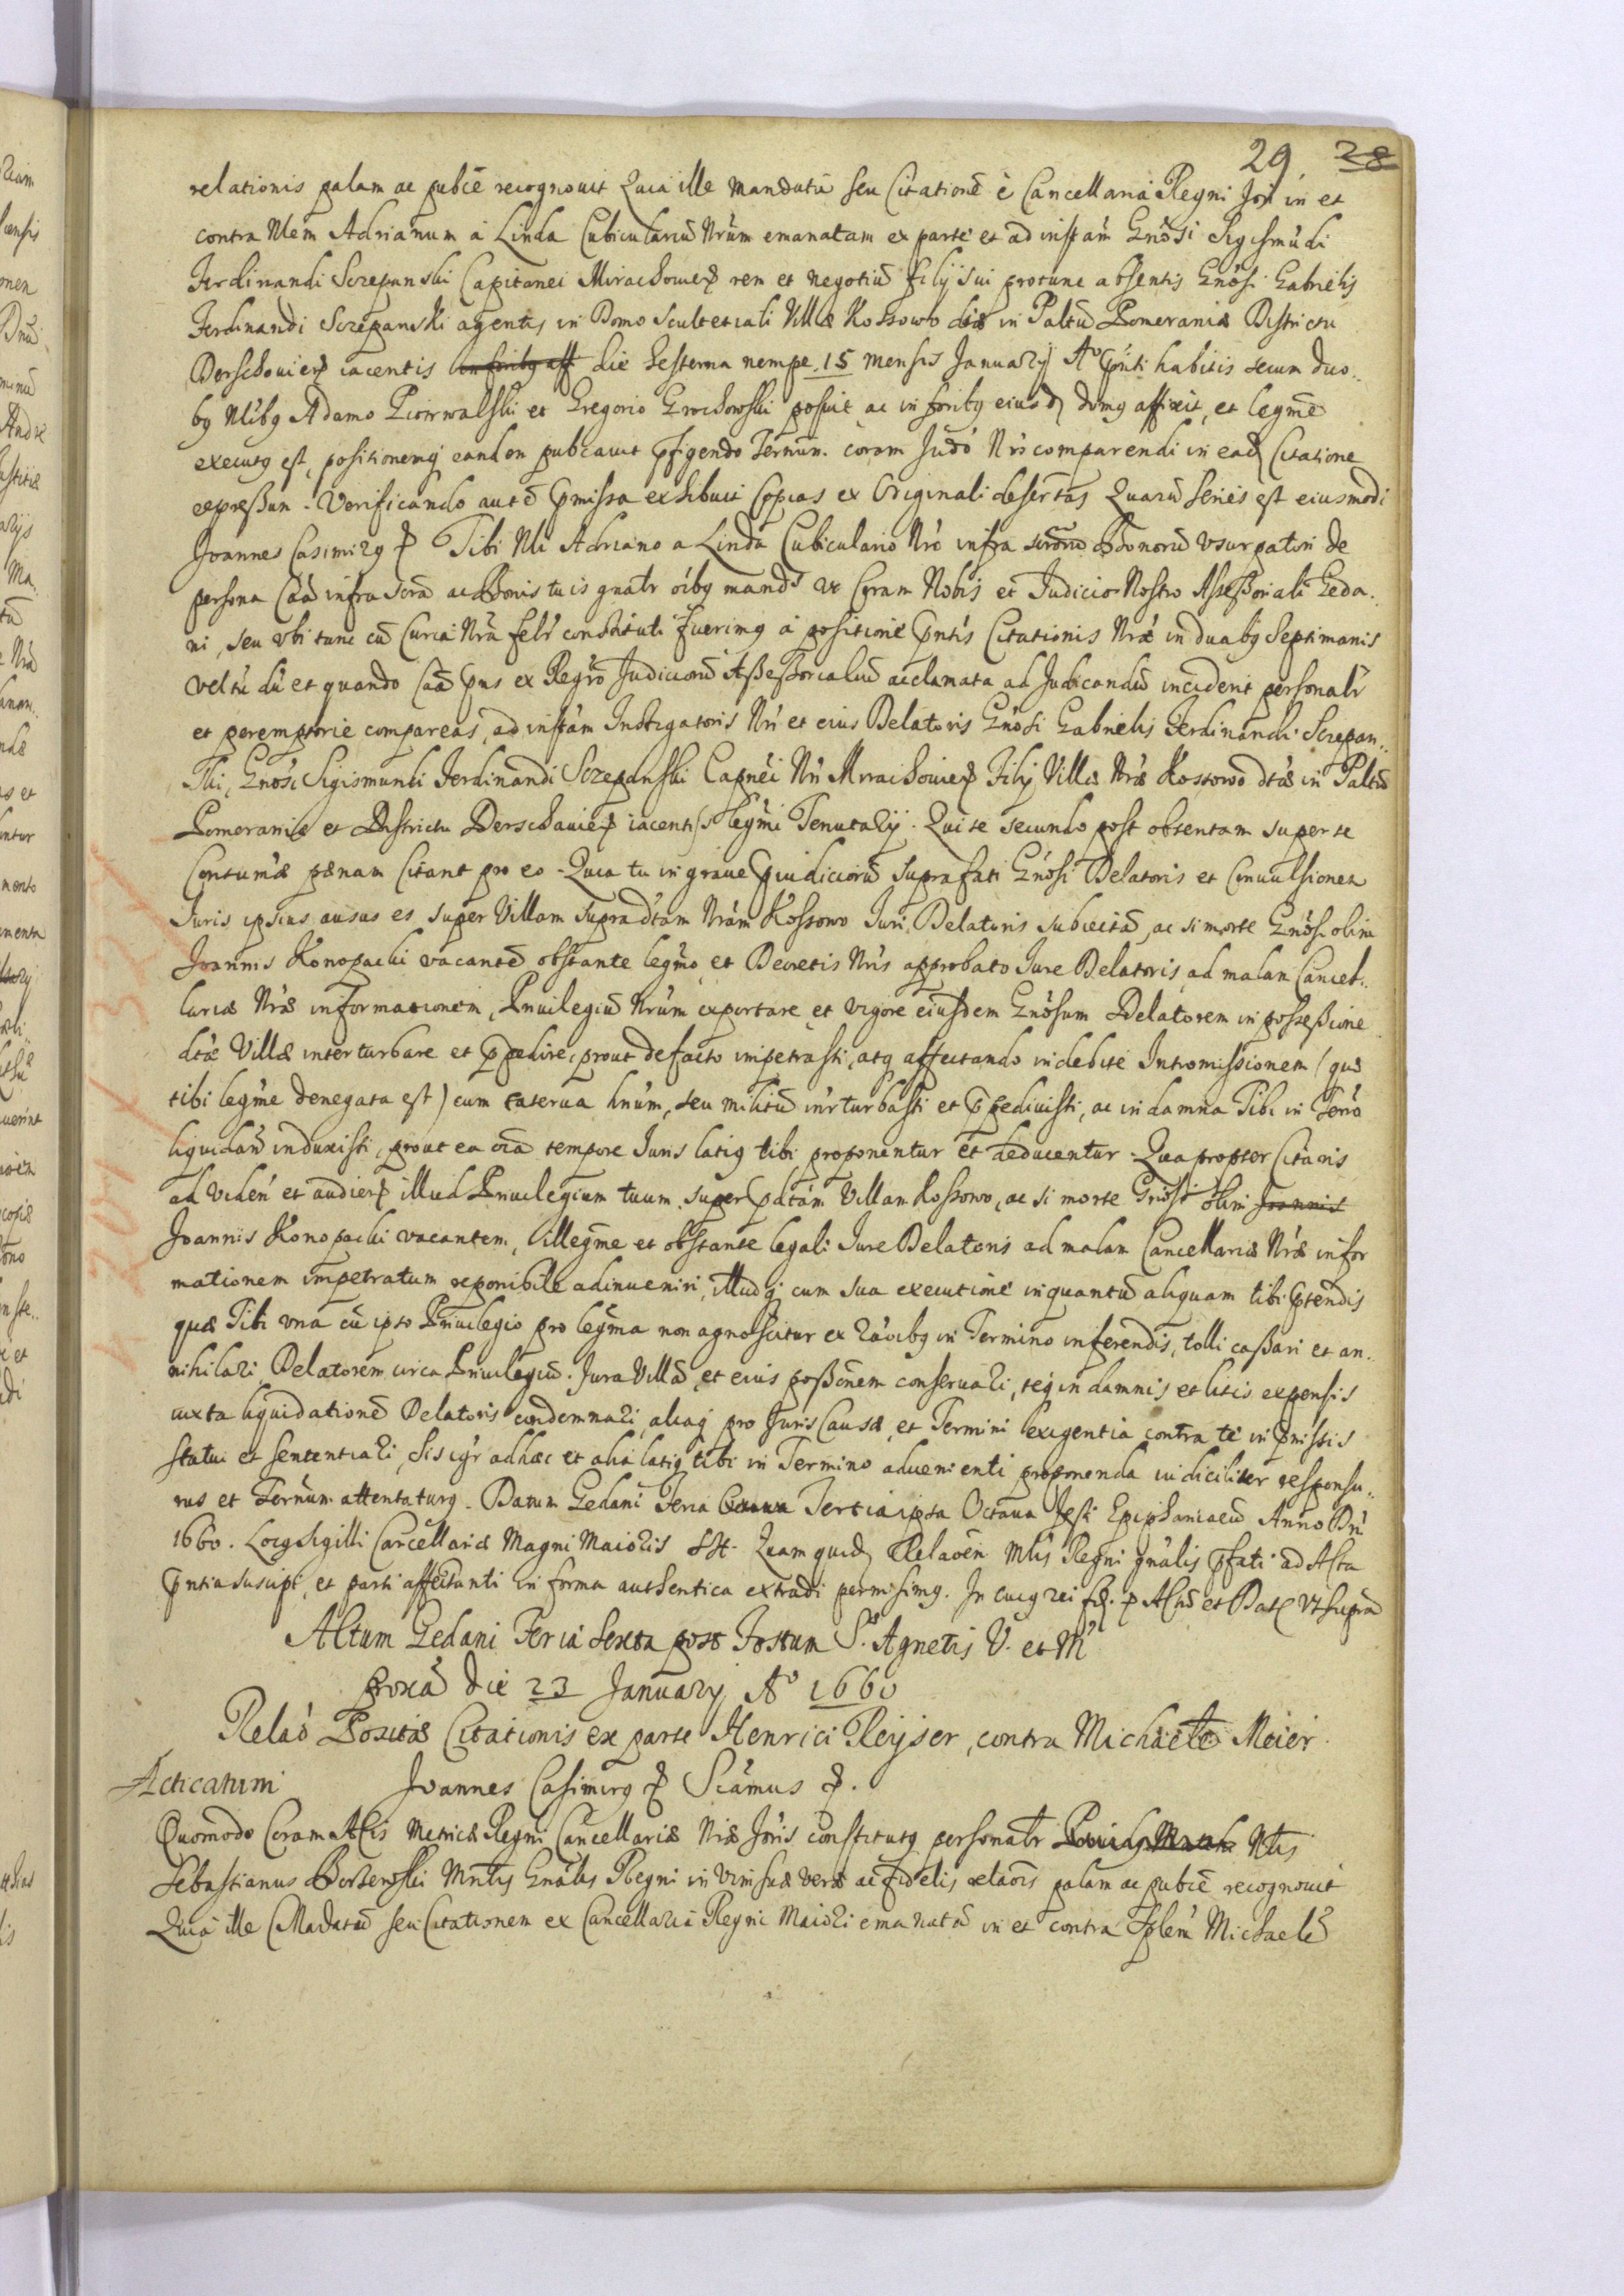 29 28
relationis palam ac pubcē recognouit Quia ille Mandatū seu Citationē è Cancellaria Regni in et
contra Nlem Adrianum à Linda Cubiculariū Nrūm emanatam ex parte et ad instām Gnōsi Sigismūdi
Ferdinandi Sczepanski Capitanei Mirachouien rem et negotiū filij sui protunc absentis Gnōsi Gabrielis
Ferdinandi Sczepanski agentis in Domo Scultetiali Villæ Kossowo dtæ in Paltū Pomeraniæ Districtu
Derschouien iacentis die hesterna nempe 15 mensis January Aº pnti habitis secum duo..
bq Nlibq Adamo et Gregorio Grochowski posuit ac in foribq eiusd domq affixit, et legmē
executq est, positionemq eandem pubcauit pfigendo Ternum. coram Judō Nrō comparendi in ead Citatione
expressum. Verificando autē pmissa exhibuit Copias ex Originali desertas Quarū series est eiusmodi
Joannes Casimirq Tibi Nli Adriano a Linda Cubiculario Nrō infra scrōrū Bonorū vsurpatori de
persona Cāā infra scrā ac Bonis tuis gnālr oībq mands vt Coram Nobis et Judicio Nostro Assessoriali Geda..
ni, seu vbi tunc cū Curia Nrā felr constituti fuerimq à positione pntis Citationis Nræ in duabq Septimanis
vel tū dū et quando Cāā pns ex Regrō Judiciorū Assessorialiū acclamata ad Judicandū inciderit personalr
et peremptorie compareas, ad instām Instigatoris Nri et eius Delatoris Gnōsi Gabrielis Ferdinandi Sczepan..
ski, Gnōsi Sigismundi Ferdinandi Sczepanski Capnēi Nri Mirachouien Filij Villæ Nræ Kossowo dtæ in Paltū
Pomeraniæ et Districtu Derschauien iacentis legmi Tenutarij. Qui te secundo post obtentam super te
Contumæ pænam Citant pro eo. Quia tu in graue piudiciorū suprafati Gnōsi Delatoris et Conuulsionem
Juris ipsius ausus es super Villam supradtam Nrām Kossowo Juri Delatoris subiectā, ac si morte Gnōsi olim
Joannis Konopacki vacantē obstante legmo et Decretis Nris approbato Jure Delatoris, ad malam Cancel..
lariæ Nræ informationem, Priuilegiū Nrūm exportare et vigore eiusdem Gnōsum Delatorem in possessione
dtæ Villæ inter turbare et ppedire, prout de facto impetrasti, atq affectando indebite Intromissionem (quæ
tibi legme denegata est) cum caterua hnūm, seu militū inrturbasti et ppediuisti, ac in damna Tibi in Ternō
liquidan induxisti, prout ea oīa tempore Juris latiq tibi proponentur et deducentur. Quapropter Citaris
ad viden et audien illud Priuilegium tuum super pdtam Villam Kossowo, ac si morte Gnōsi olim Joannis
Joannis Konopacki vacantem, illegme et obstante legali Jure Delatoris ad malam Cancellariæ Nræ infor
mationem impetratum reponibile adinueniri, illudq cum sua executione inquantū aliquam tibi ptendis
quæ Tibi vna cū ipso Priuilegio pro legma non agnoscitur ex raōibq in Termino inferendis, tolli cassari et an..
nihilari, Delatorem circa Priuilegiū. Jura Villæ, et eius possonem conseruari, teq in damnis et litis expensis
iuxta liquidationē Delatoris condemnari, aliaq pro Juris Causæ, et Termini exigentia contra te in pmissis
statui et sententiari, sis igr adhæc et alia latiq tibi in Termino aduenienti proponenda iudicialiter responsu..
rus et Ternum attentaturq. Datum Gedani Feria Tertia ipsa Octaua Festi Epiphaniarū Anno Dni
1660. Locq Sigilli Cancellariæ Magni Maioris SSt. Quam quid Relaōen Mlis Regni gnālis pfati ad Acta
pntia suscipi, et parti affectanti in forma authentica extradi permisimq. In cuiq rei fid. p Actū et Dat vt supra
Actum Gedani Feria Sexta post Festum S. Agnetis V. et M
proxā die 23 January Aº 1660
Relaō Positæ Citationis ex parte Henrici Reyser, contra Michaelē Meier.
Acticatum Joannes Casimirq Scāmus
Quomodo Coram Actis Metricæ Regni Cancellariæ Nræ Joris constitutq personalr Nlis
Sebastianus Borzewski Mntlis Gnālis Regni in vim suæ veræ ac fidelis relaōis palam ac pubcē recognouit
Quia ille Madatū seu Citationem ex Cancellaria Regni Maiori emanatā in et contra Michaelē